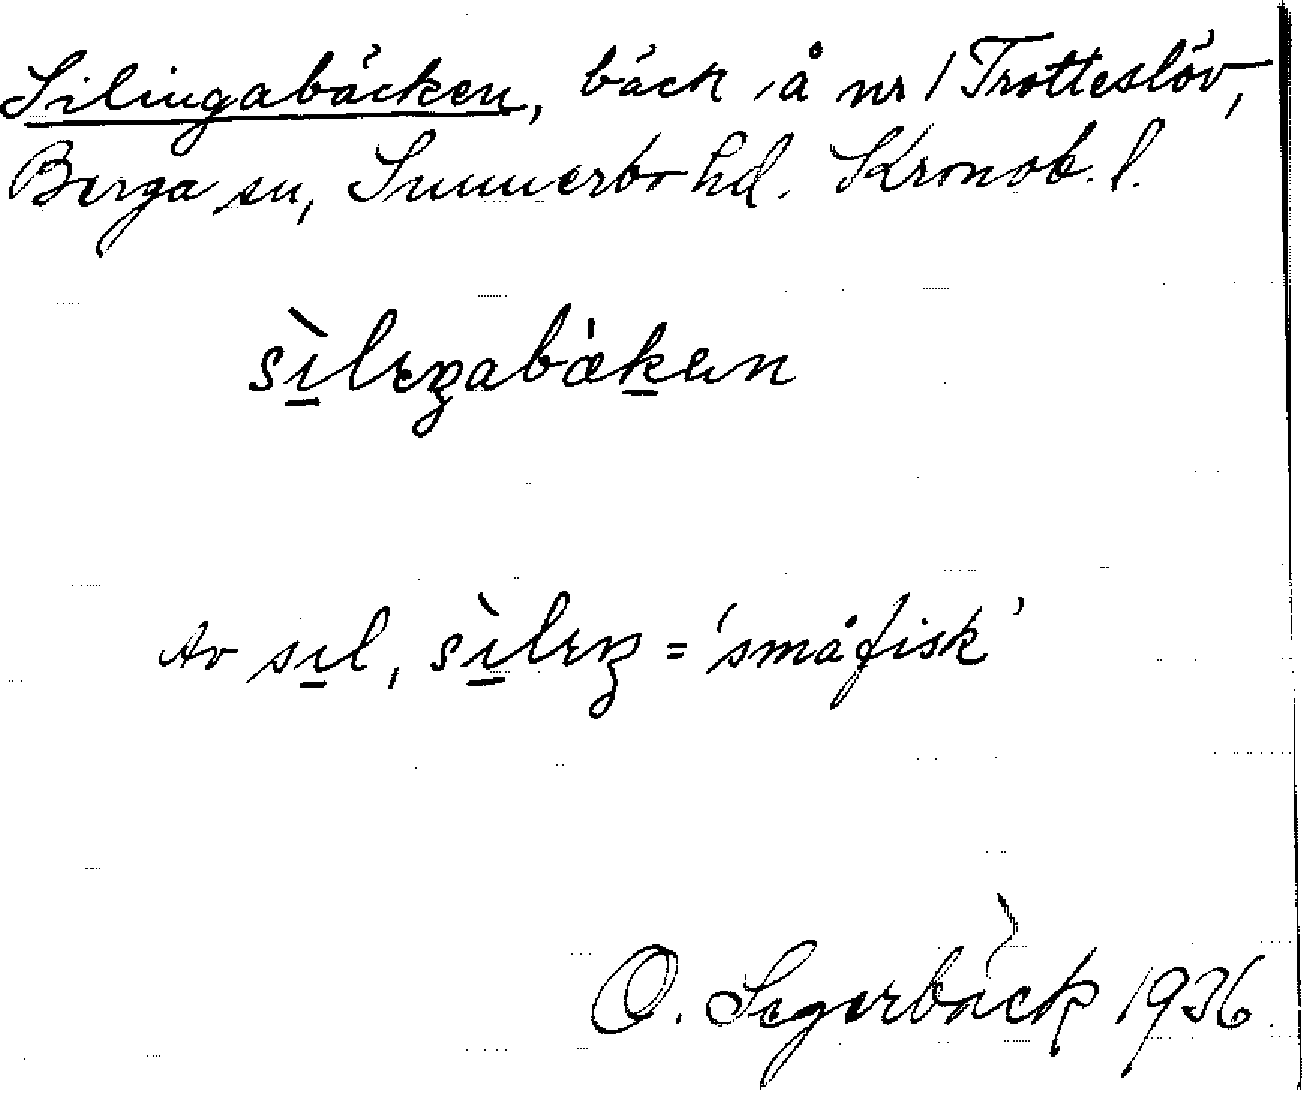 Silingabäcken, bäck, å nr 1 Trotteslöv,
Berga sn, Sunnerbo hd. Kronob. l.
sìlıŋabækən
Av sıl, sìlıŋ = 'småfisk'
O. Segerbäck 1936